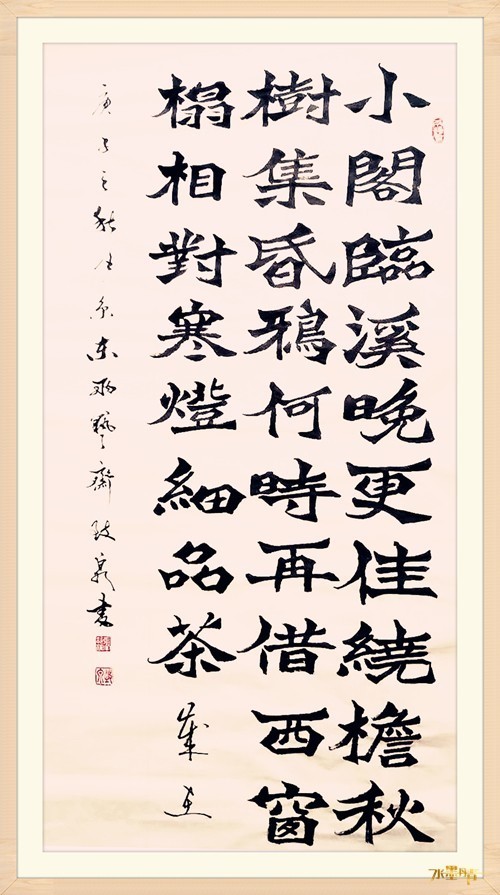 小閣臨溪晚更佳繞檐秋
樹集昏鴉何時再借西窗
榻相對寒燈細品茶 歲在
庚子之秋 京東雨 齋 泉書
水墨